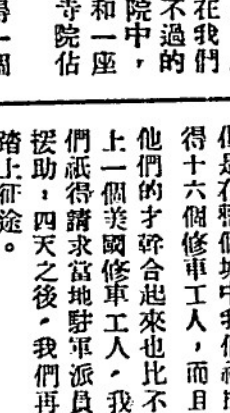 在我們
不過的
院中，
和一座
寺院佔
得一個
得十六個修車工人，而且
他們的才幹合起來也比不
上一個美國修車工人。我
們祇得請求當地駐軍派員
援助，四天之後，我們再
踏上征途。